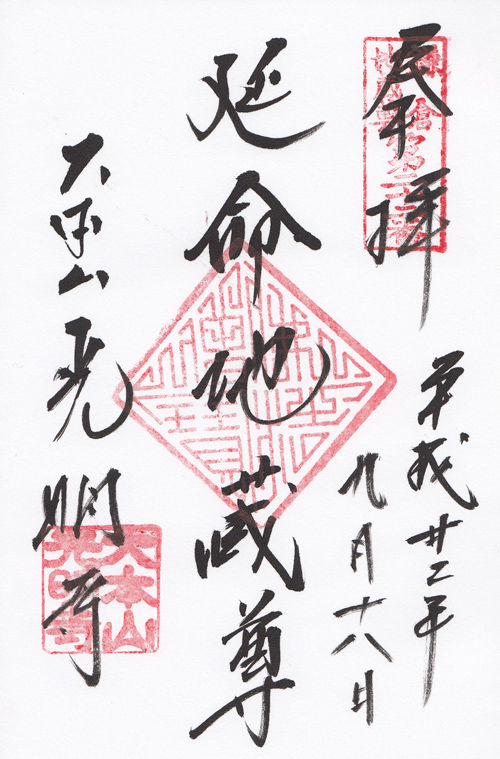 奉拝
平成廿二年
九月十八日
延命地蔵尊
大本山光明寺
大本山
光明寺